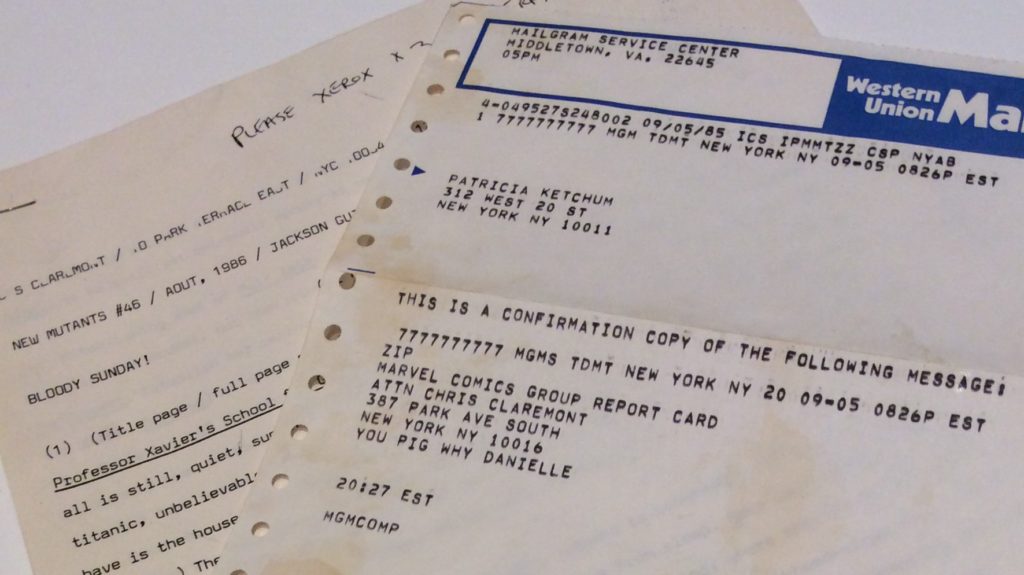 PLEASE XEROX X
PARK
EAST / NYC
NEW MUTANTS #46 / AOUT, 1986 / JACKSON
BLOODY SUNDAY!
(1) (Title page / full page
Professor Xavier's School
all is still, quiet,
titanic,
have is the house
MAILGRAM SERVICE CENTER
MIDDLETOWN, VA. 22645
05PM
Western
Union
4-049527S248002 09/05/85 ICS IPMMTZZ CSP NYAB
1 7777777777 MGM TDMT NEW YORK NY 09-05 0826P EST
PATRICIA KETCHUM
312 WEST 20 ST
NEW YORK NY 10011
THIS IS A CONFIRMATION COPY OF THE FOLLOWING MESSAGE:
7777777777 MGMS TDMT NEW YORK NY 20 09-05 0826P EST
ZIP
MARVEL COMICS GROUP REPORT CARD
ATTN CHRIS CLAREMONT
387 PARK AVE SOUTH
NEW YORK NY 10016
YOU PIG WHY DANIELLE
20:27 EST
MGMCOMP